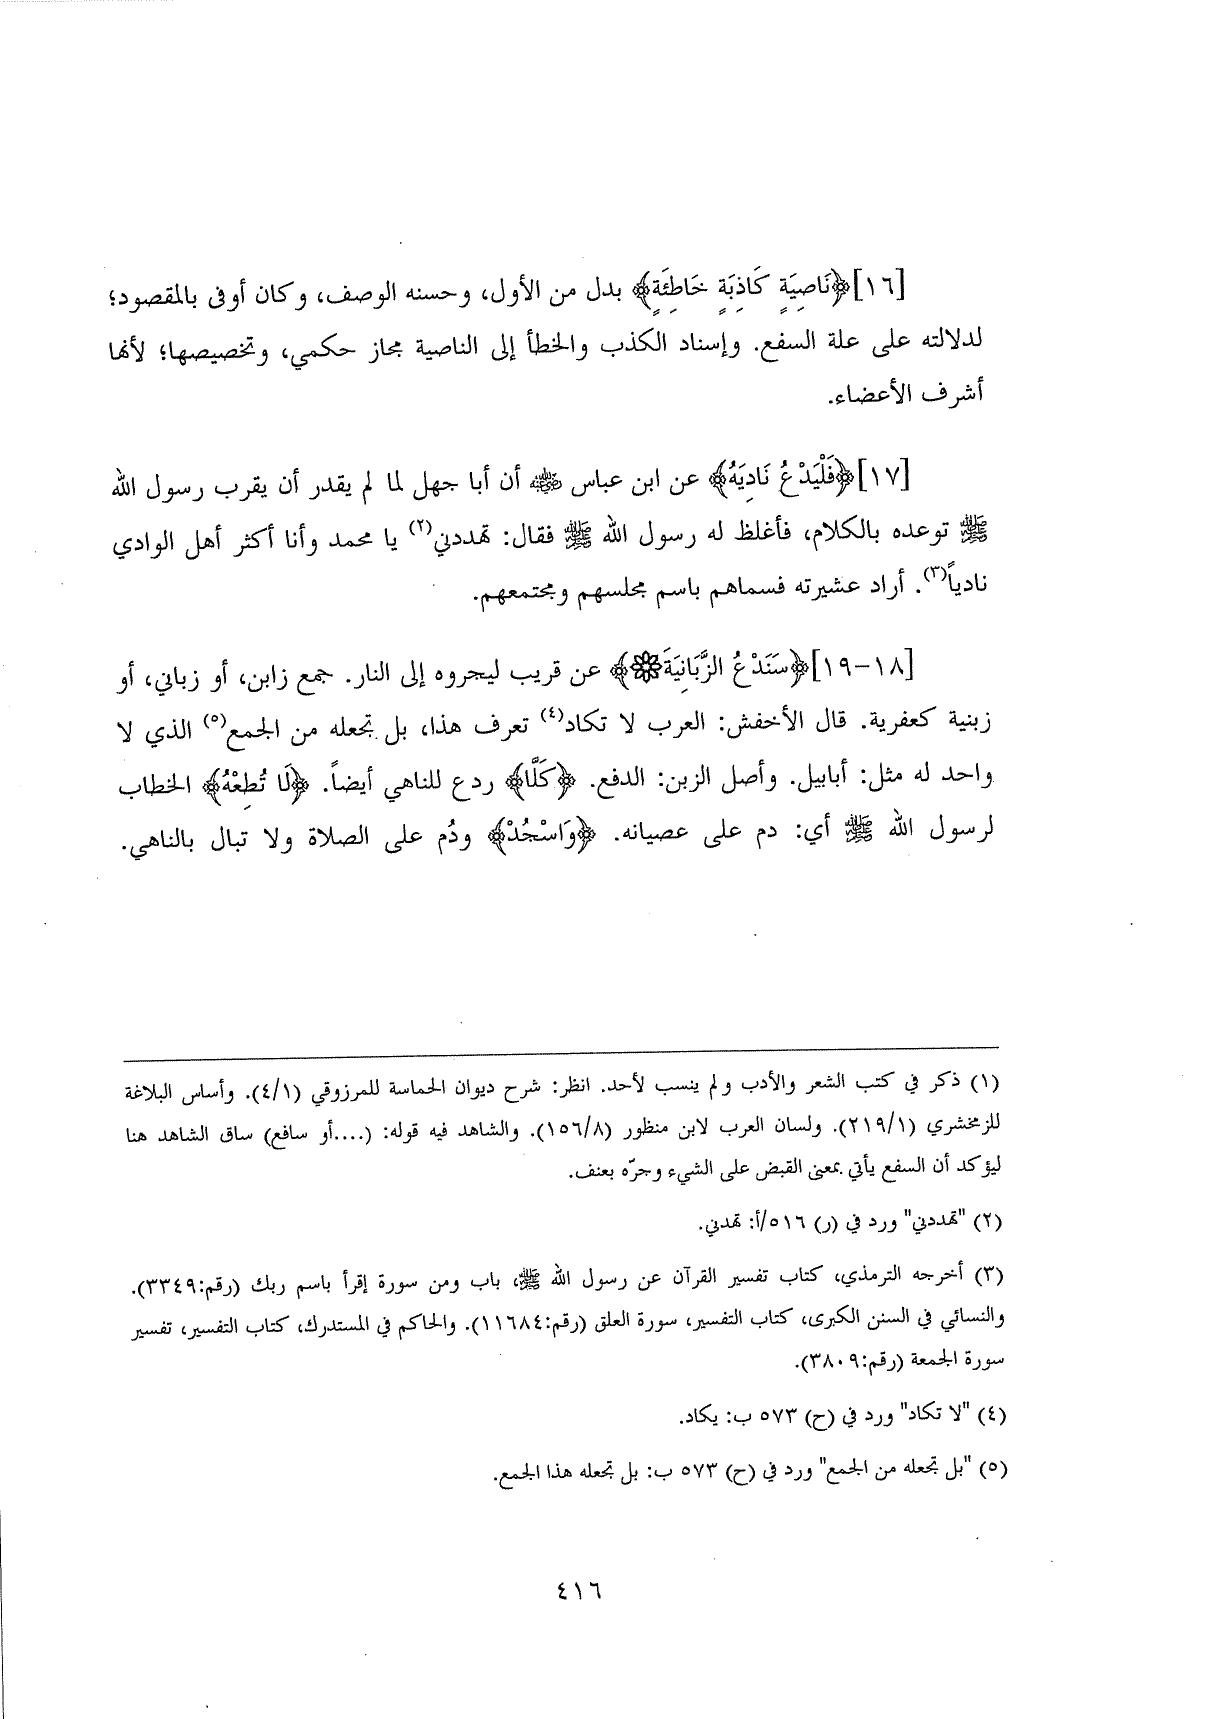 [١٦]﴿نَاصِيَةٍ كَاذِبَةٍ خَاطِئَةٍ﴾ بدل من الأول، وحسنه الوصف، وكان أوفى بالمقصود؛
لدلالته على علة السفع. وإسناد الكذب والخطأ إلى الناصية مجاز حكمي، وتخصيصها؛ لأنها
أشرف الأعضاء.
[١٧]﴿فَلْيَدْعُ نَادِيَهُ﴾ عن ابن عباس ﵁ أن أبا جهل لما لم يقدر أن يقرب رسول الله
ﷺ توعده بالكلام، فأغلظ له رسول الله ﷺ فقال: تهددني(٢) يا محمد وأنا أكثر أهل الوادي
نادياً(٣). أراد عشيرته فسماهم باسم مجلسهم ومجتمعهم.
[١٨-١٩]﴿سَنَدْعُ الزَّبَانِيَةَ۝﴾ عن قريب ليجروه إلى النار. جمع زابن، أو زباني، أو
زبنية كعفرية. قال الأخفش: العرب لا تكاد(٤) تعرف هذا، بل تجعله من الجمع(٥) الذي لا
واحد له مثل: أبابيل. وأصل الزبن: الدفع. ﴿كَلَّا﴾ ردع للناهي أيضاً. ﴿لَا تُطِعْهُ﴾ الخطاب
لرسول الله ﷺ أي: دم على عصيانه. ﴿وَاسْجُدْ﴾ ودُم على الصلاة ولا تبال بالناهي.
(١) ذكر في كتب الشعر والأدب ولم ينسب لأحد. انظر: شرح ديوان الحماسة للمرزوقي (٤/١). وأساس البلاغة
للزمخشري (٢١٩/١). ولسان العرب لابن منظور (١٥٦/٨). والشاهد فيه قوله: (....أو سافع) ساق الشاهد هنا
ليؤكد أن السفع يأتي بمعنى القبض على الشيء وجرّه بعنف.
(٢) "تهددني" ورد في (ر) ٥١٦/أ: تهدني.
(٣) أخرجه الترمذي، كتاب تفسير القرآن عن رسول الله ﷺ، باب ومن سورة إقرأ باسم ربك (رقم:٣٣٤٩).
والنسائي في السنن الكبرى، كتاب التفسير، سورة العلق (رقم:١١٦٨٤). والحاكم في المستدرك، كتاب التفسير، تفسير
سورة الجمعة (رقم:٣٨٠٩).
(٤) "لا تكاد" ورد في (ح) ٥٧٣ ب: يكاد.
(٥) "بل تجعله من الجمع" ورد في (ح) ٥٧٣ ب: بل تجعله هذا الجمع.
٤١٦